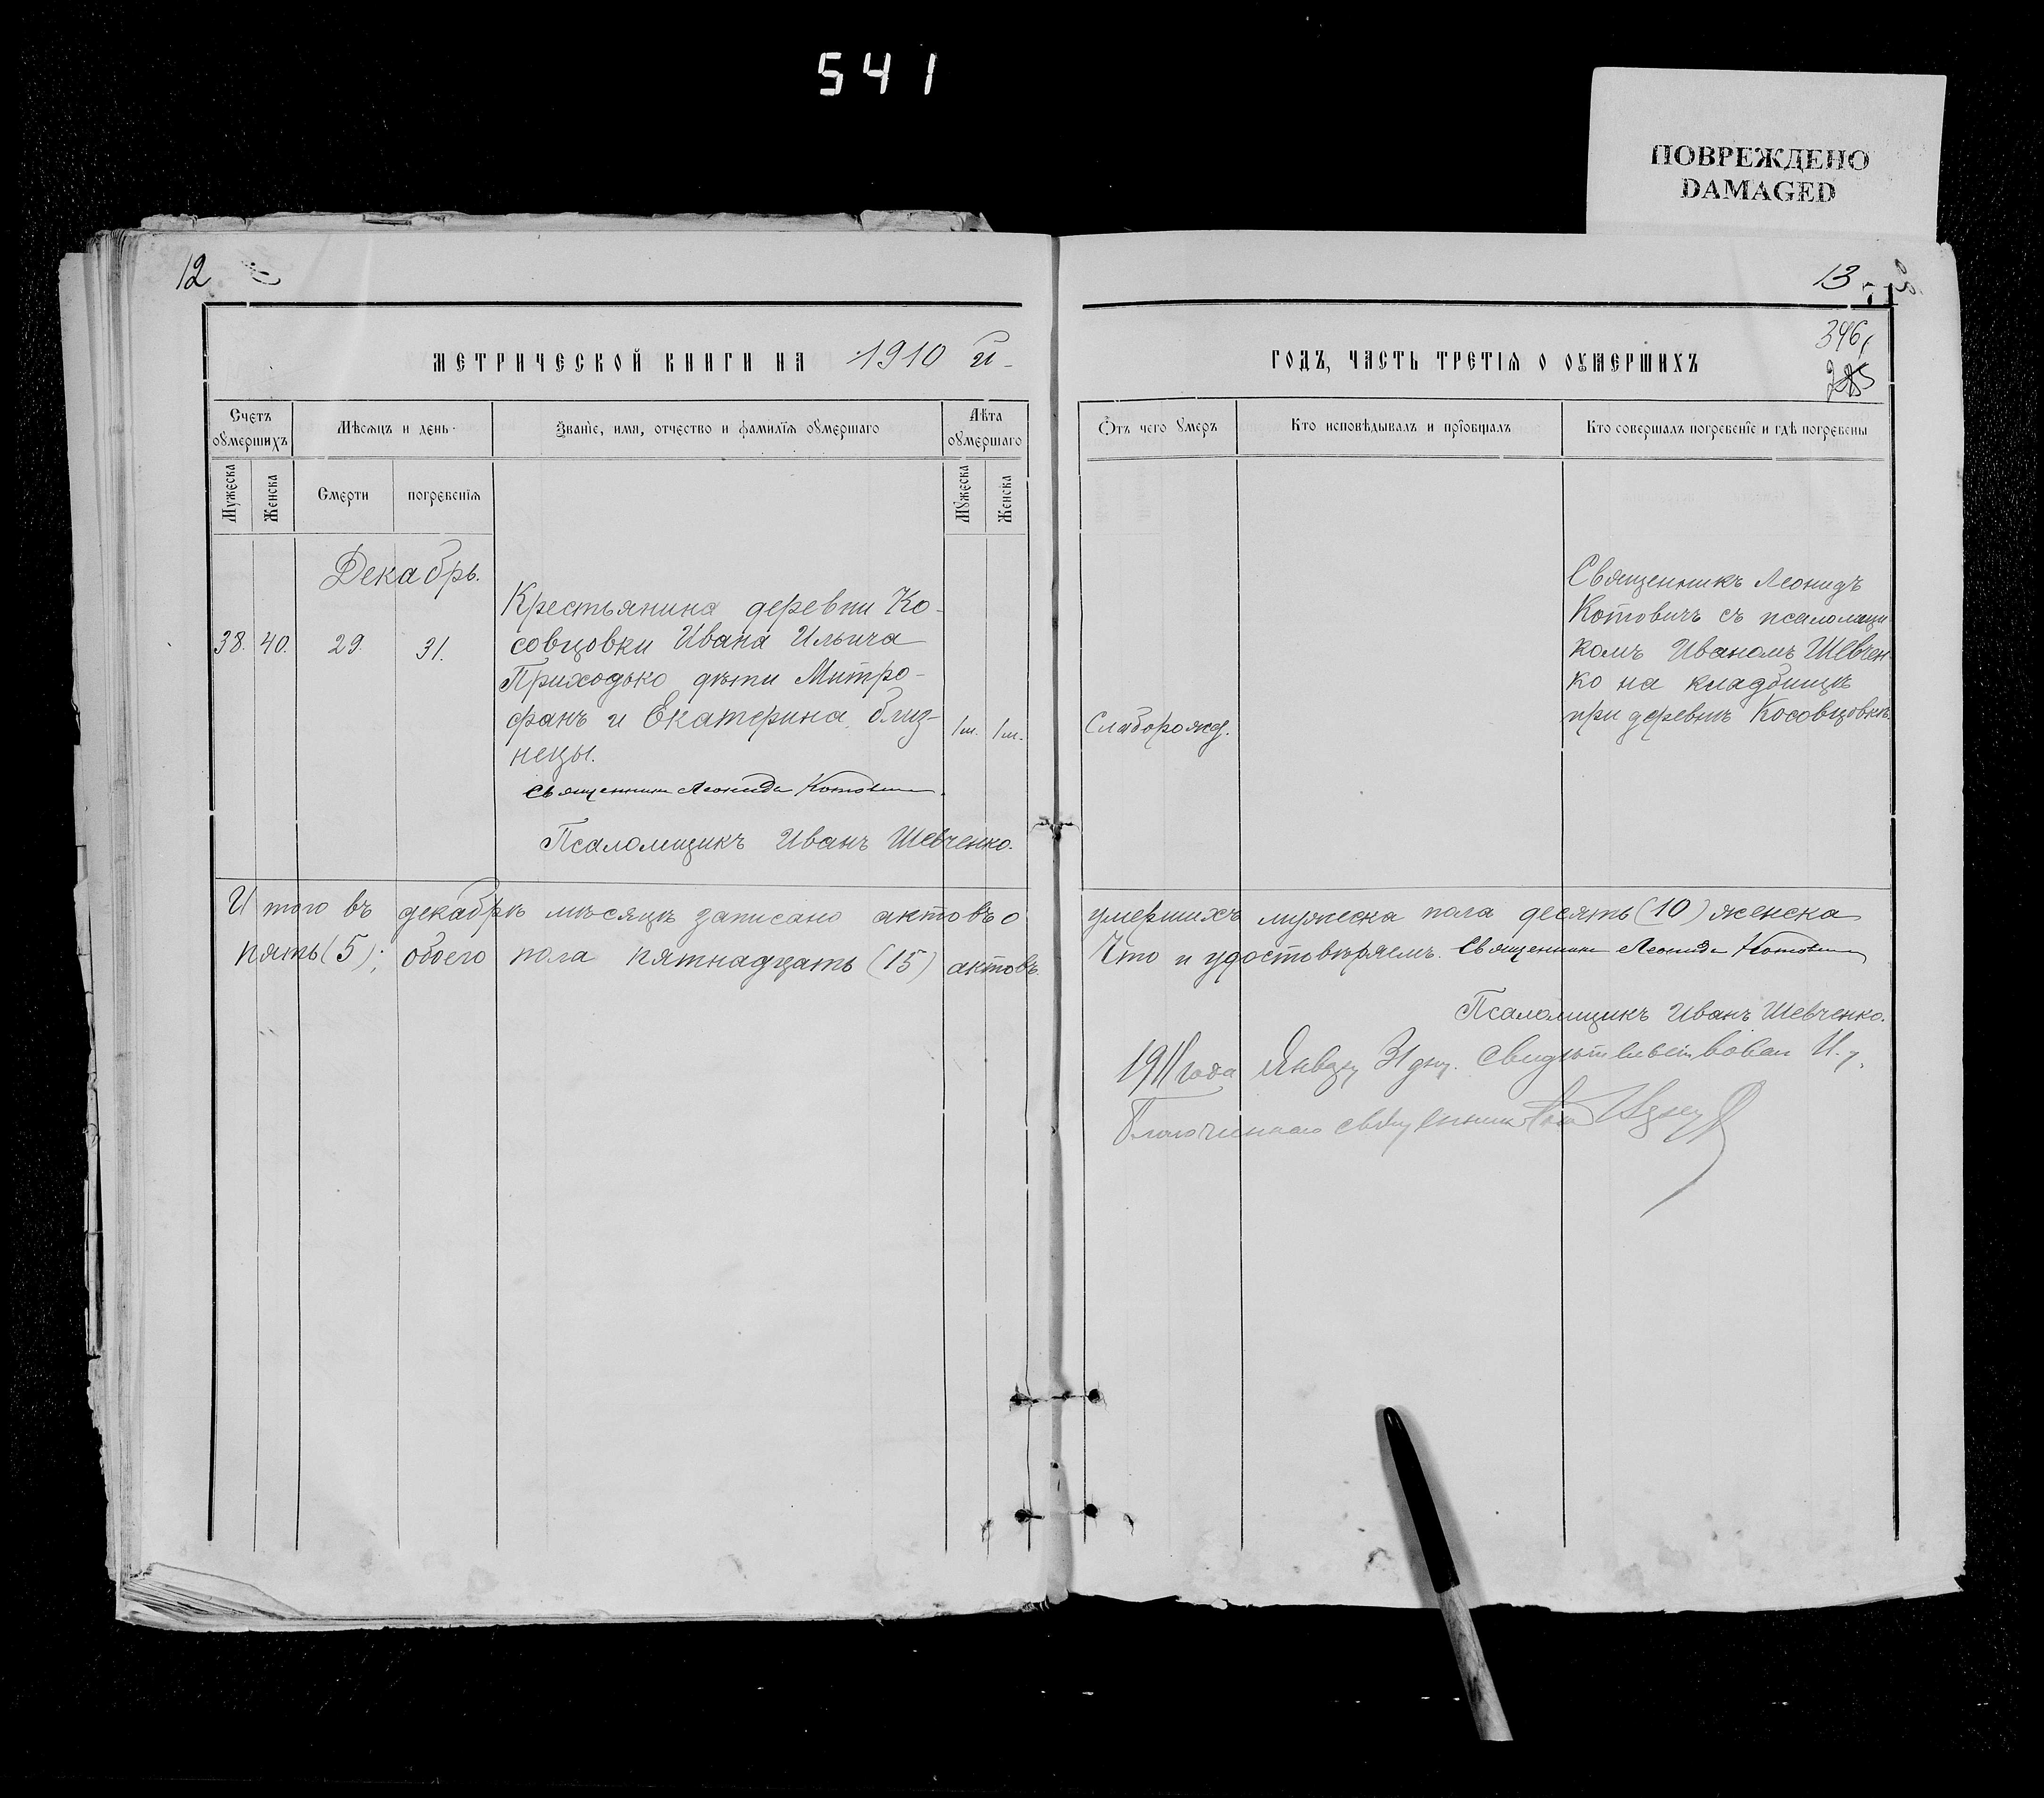 541
ПОВРЕЖДЕНО
DAMAGED
12
МЕТРИЧЕСКОЙ КНИГИ НА 1910 й
Счетъ оумершихъ
Мѣсяцъ и день
Званіе, имя, отчество и фамилія оумершаго
Лѣта оумершаго
Мужеска
Женска
Смерти
погребенія
Мужеска
Женска
Декабрь.
38. 40. 29. 31.
Крестьянина деревни Ко-
совцовки Ивана Ильича
Приходько дѣти Митро-
фанъ и Екатерина близ-
нецы.
1м. 1м.
Священникъ Леонидъ Котовичъ
Псаломщикъ Иванъ Шевченко.
Итого въ декабрѣ мѣсяцѣ записано актовъ о
пять (5); обоего пола пятнадцать (15) актовъ.
13
346
285
ГОДЪ, ЧАСТЬ ТРЕТІЯ О ОУМЕРШИХЪ
Отъ чего умеръ
Кто исповѣдывалъ и пріобщалъ
Кто совершалъ погребеніе и гдѣ погребены
Слаборожд.
Священникъ Леонидъ
Котовичъ съ псаломщи
комъ Иваномъ Шевчен-
ко на кладбищѣ
при деревнѣ Косовцовкѣ.
умершихъ мужеска пола десять (10) женска
Что и удостовѣряемъ. Священникъ Леонидъ Котовичъ
Псаломщикъ Иванъ Шевченко.
1911 года Января 31 дня. свидѣтельствовалъ И. д.
Благочиннаго священникъ